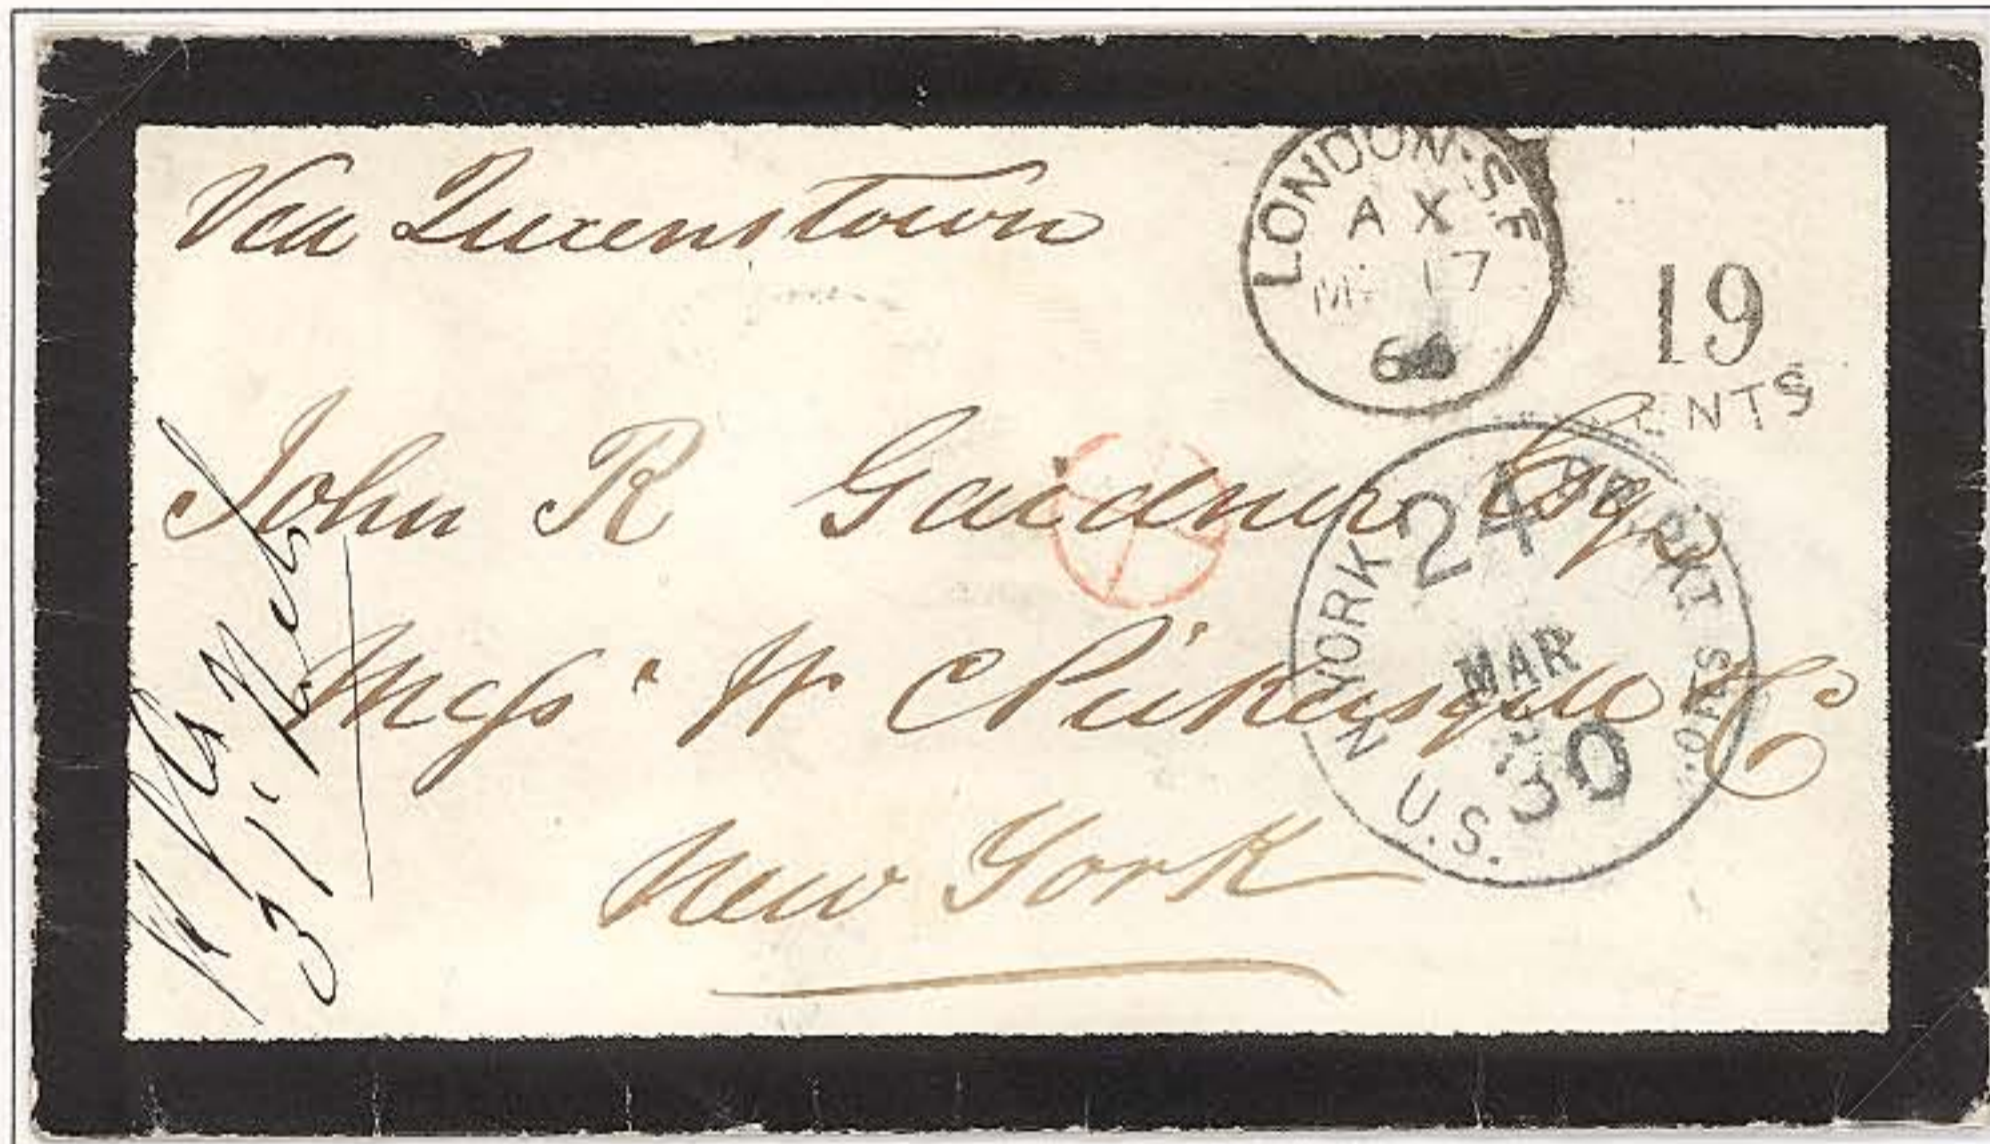 Via Queenstown
LONDON·S.E
A X
MR 17
19
CENTS
John R Gardner Esqr
Messrs W C Pickersgill & Co
New York
N. YORK BR. PKT. 24
MAR
30
U.S. NOTES
31